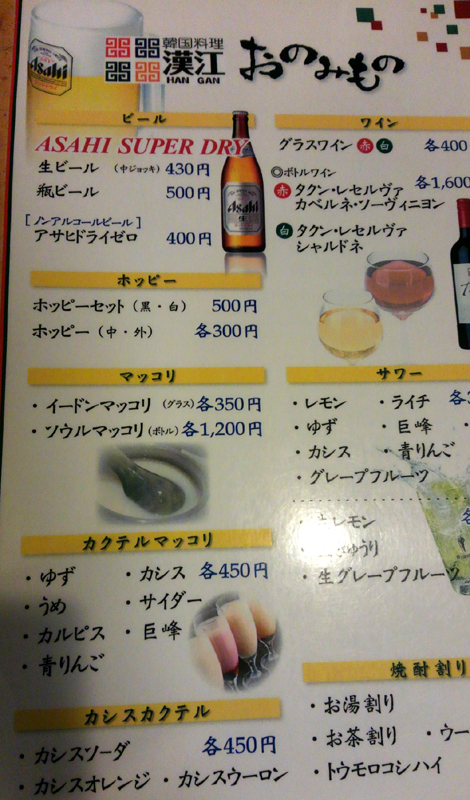 韓国料理
漢江
HAN GAN
おのみもの
Asahi
ビール
ASAHI SUPER DRY
生ビール (中ジョッキ) 430円
瓶ビール 500円
[ノンアルコールビール]
アサヒドライゼロ 400円
Asahi
ホッピー
ホッピーセット (黒・白) 500円
ホッピー (中・外) 各300円
マッコリ
・イードンマッコリ (グラス) 各350円
・ソウルマッコリ (ボトル) 各1,200円
カクテルマッコリ
・ゆず ・カシス 各450円
・うめ ・サイダー
・カルピス ・巨峰
・青りんご
カシスカクテル
・カシスソーダ 各450円
・カシスオレンジ ・カシスウーロン
ワイン
グラスワイン 赤 白 各400
◎ボトルワイン
各1,600
赤 タクン・レセルヴァ
カベルネ・ソーヴィニヨン
白 タクン・レセルヴァ
シャルドネ
サワー
・レモン ・ライチ 各
・ゆず ・巨峰
・カシス ・青りんご
・グレープフルーツ
レモン
うり
・生グレープフルーツ
焼酎割り
・お湯割り
・お茶割り ・ウー
・トウモロコシハイ